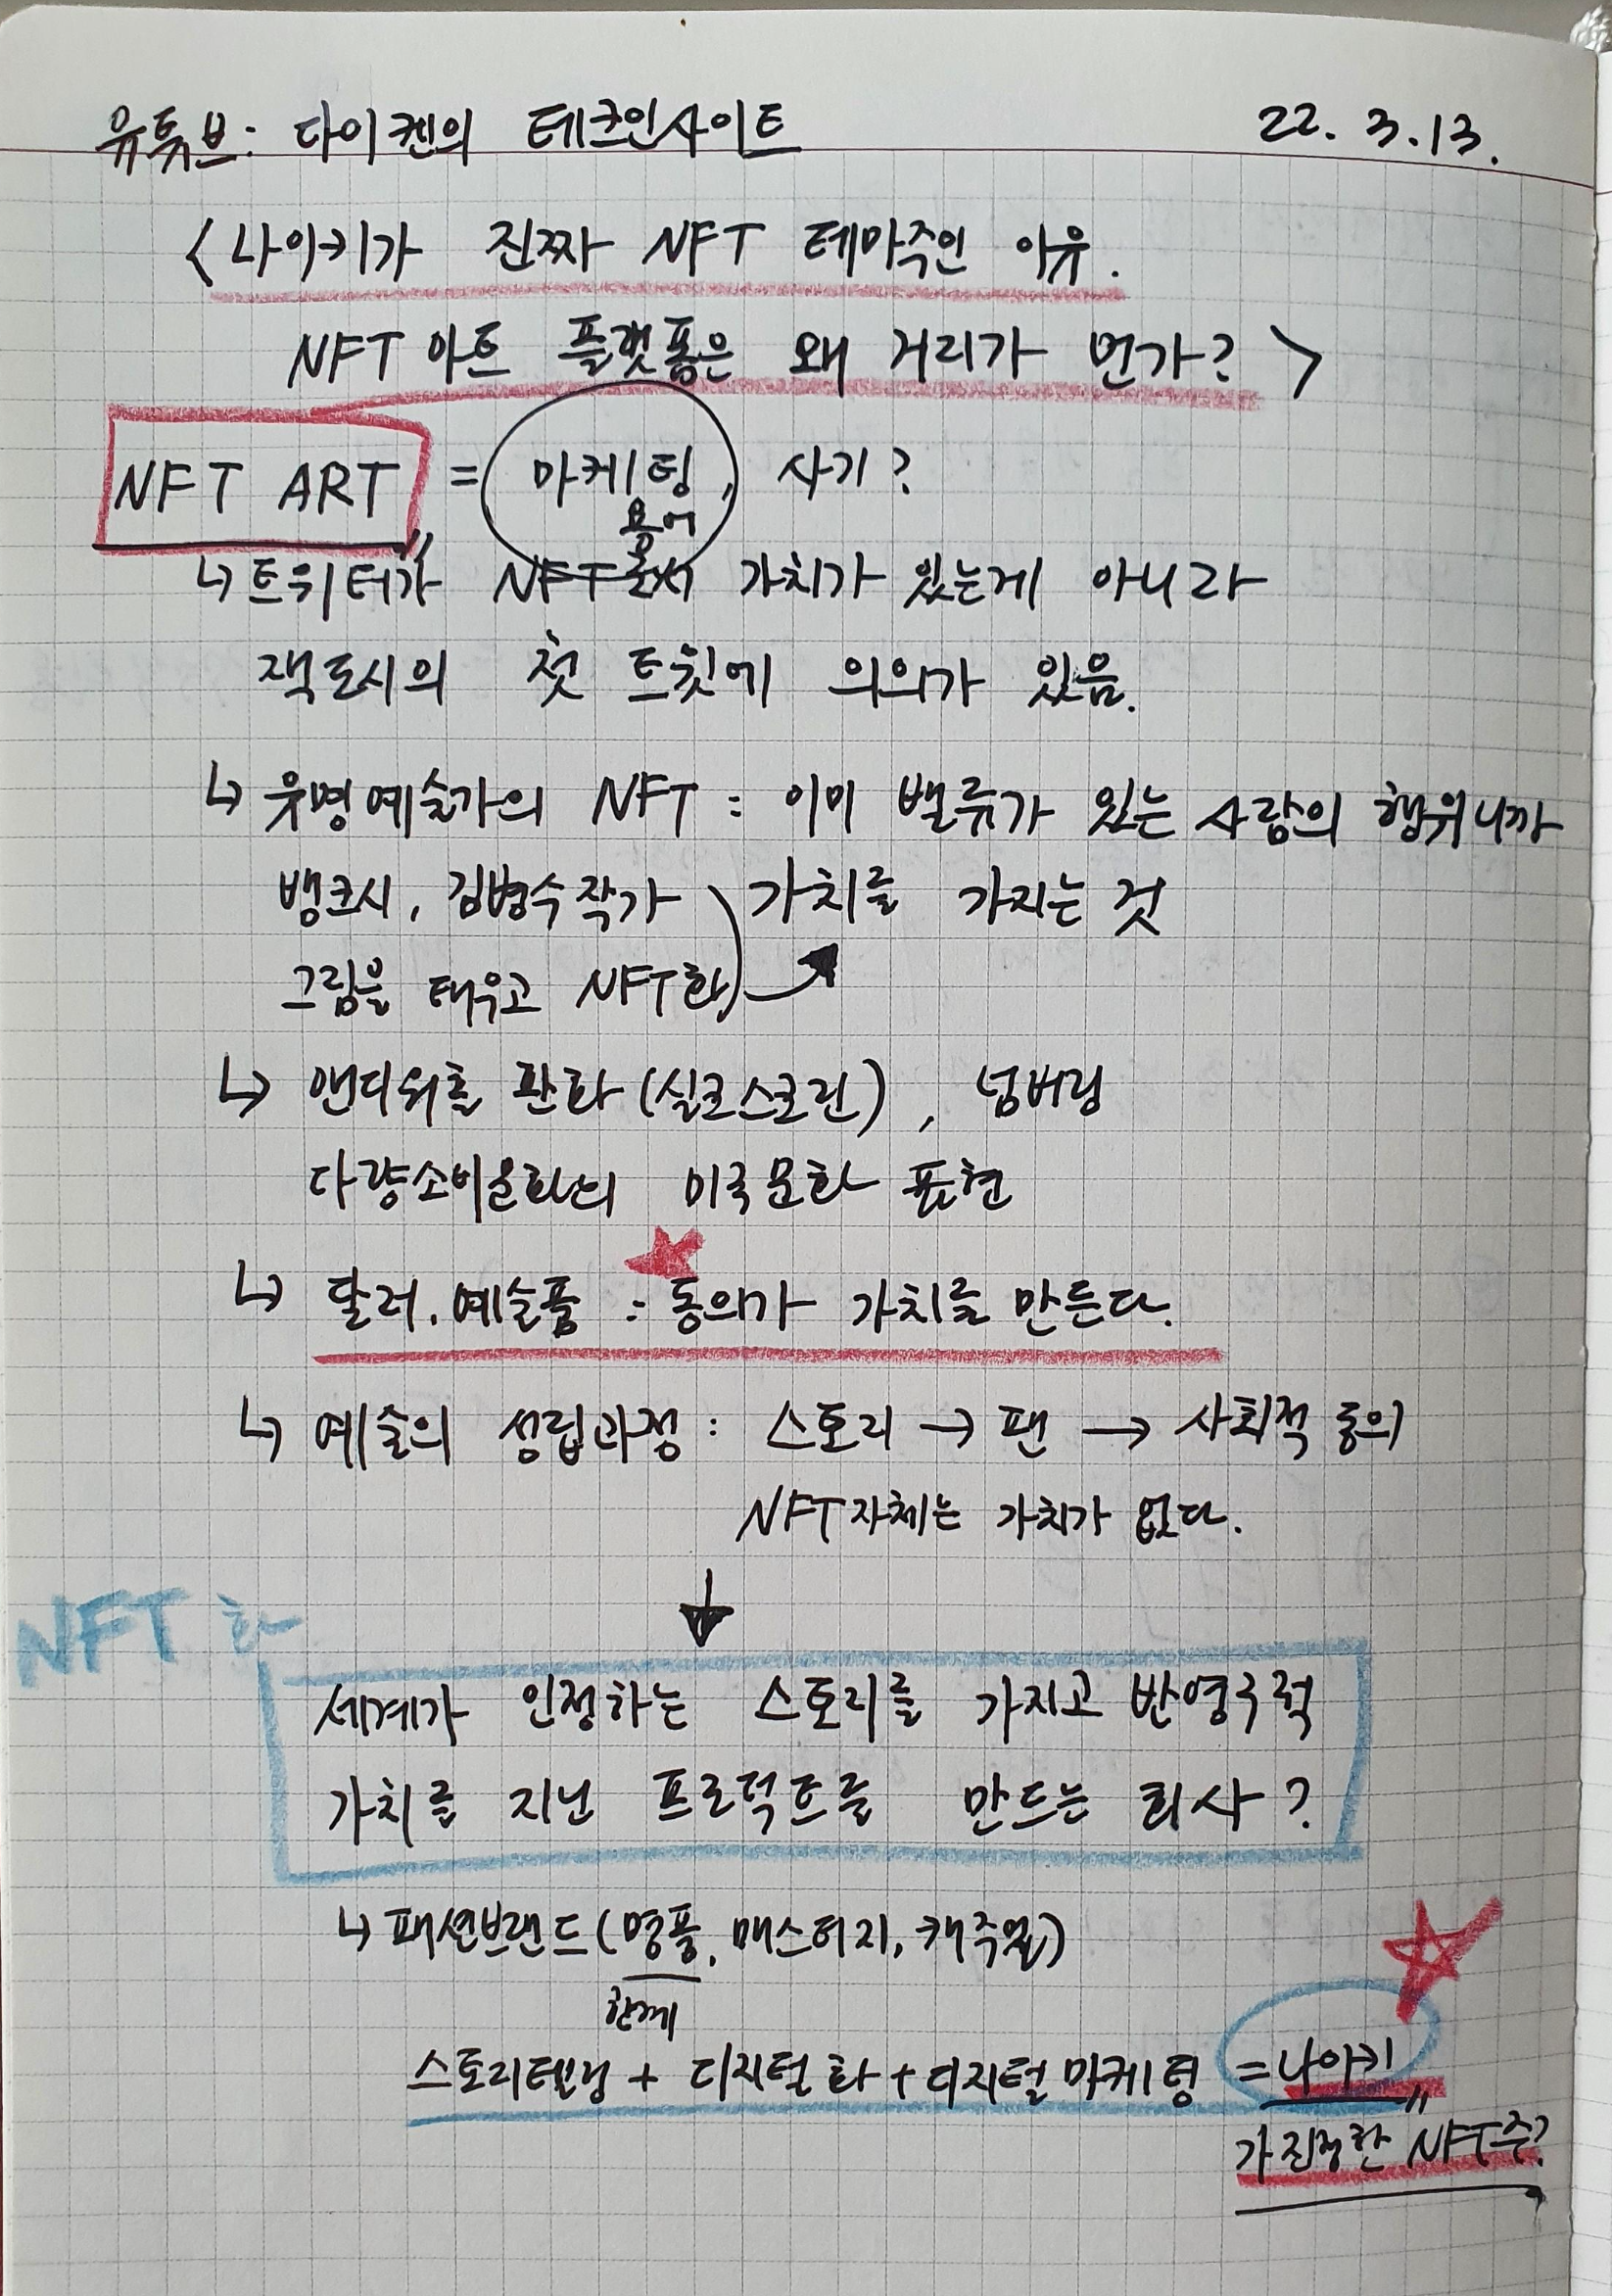 유튜브: 다이켄의 테크인사이트 22. 3. 13.
< 나이키가 진짜 NFT 테마주인 이유.
NFT 아트 플랫폼은 왜 거리가 먼가? >
NFT ART = 마케팅, 사기?
용어
↳ 트위터가 NFT로서 가치가 있는게 아니라
잭도시의 첫 트윗에 의의가 있음.
↳ 유명예술가의 NFT : 이미 밸류가 있는 사람의 행위니까
뱅크시, 김병수작가 가치를 가지는 것
그림을 태우고 NFT화
↳ 앤디워홀 판화 (실크스크린) , 넘버링
다량소비문화의 미국문화 표현
↳ 달러, 예술품 : 동의가 가치를 만든다.
↳ 예술의 성립과정 : 스토리 → 팬 → 사회적 동의
NFT자체는 가치가 없다.
↓
NFT화
세계가 인정하는 스토리를 가지고 반영구적
가치를 지닌 프로덕트를 만드는 회사?
↳ 패션브랜드 (명품, 매스티지, 캐주얼)
한계
스토리텔링 + 디지털화 + 디지털마케팅 = 나이키"
가 진정한 NFT주?